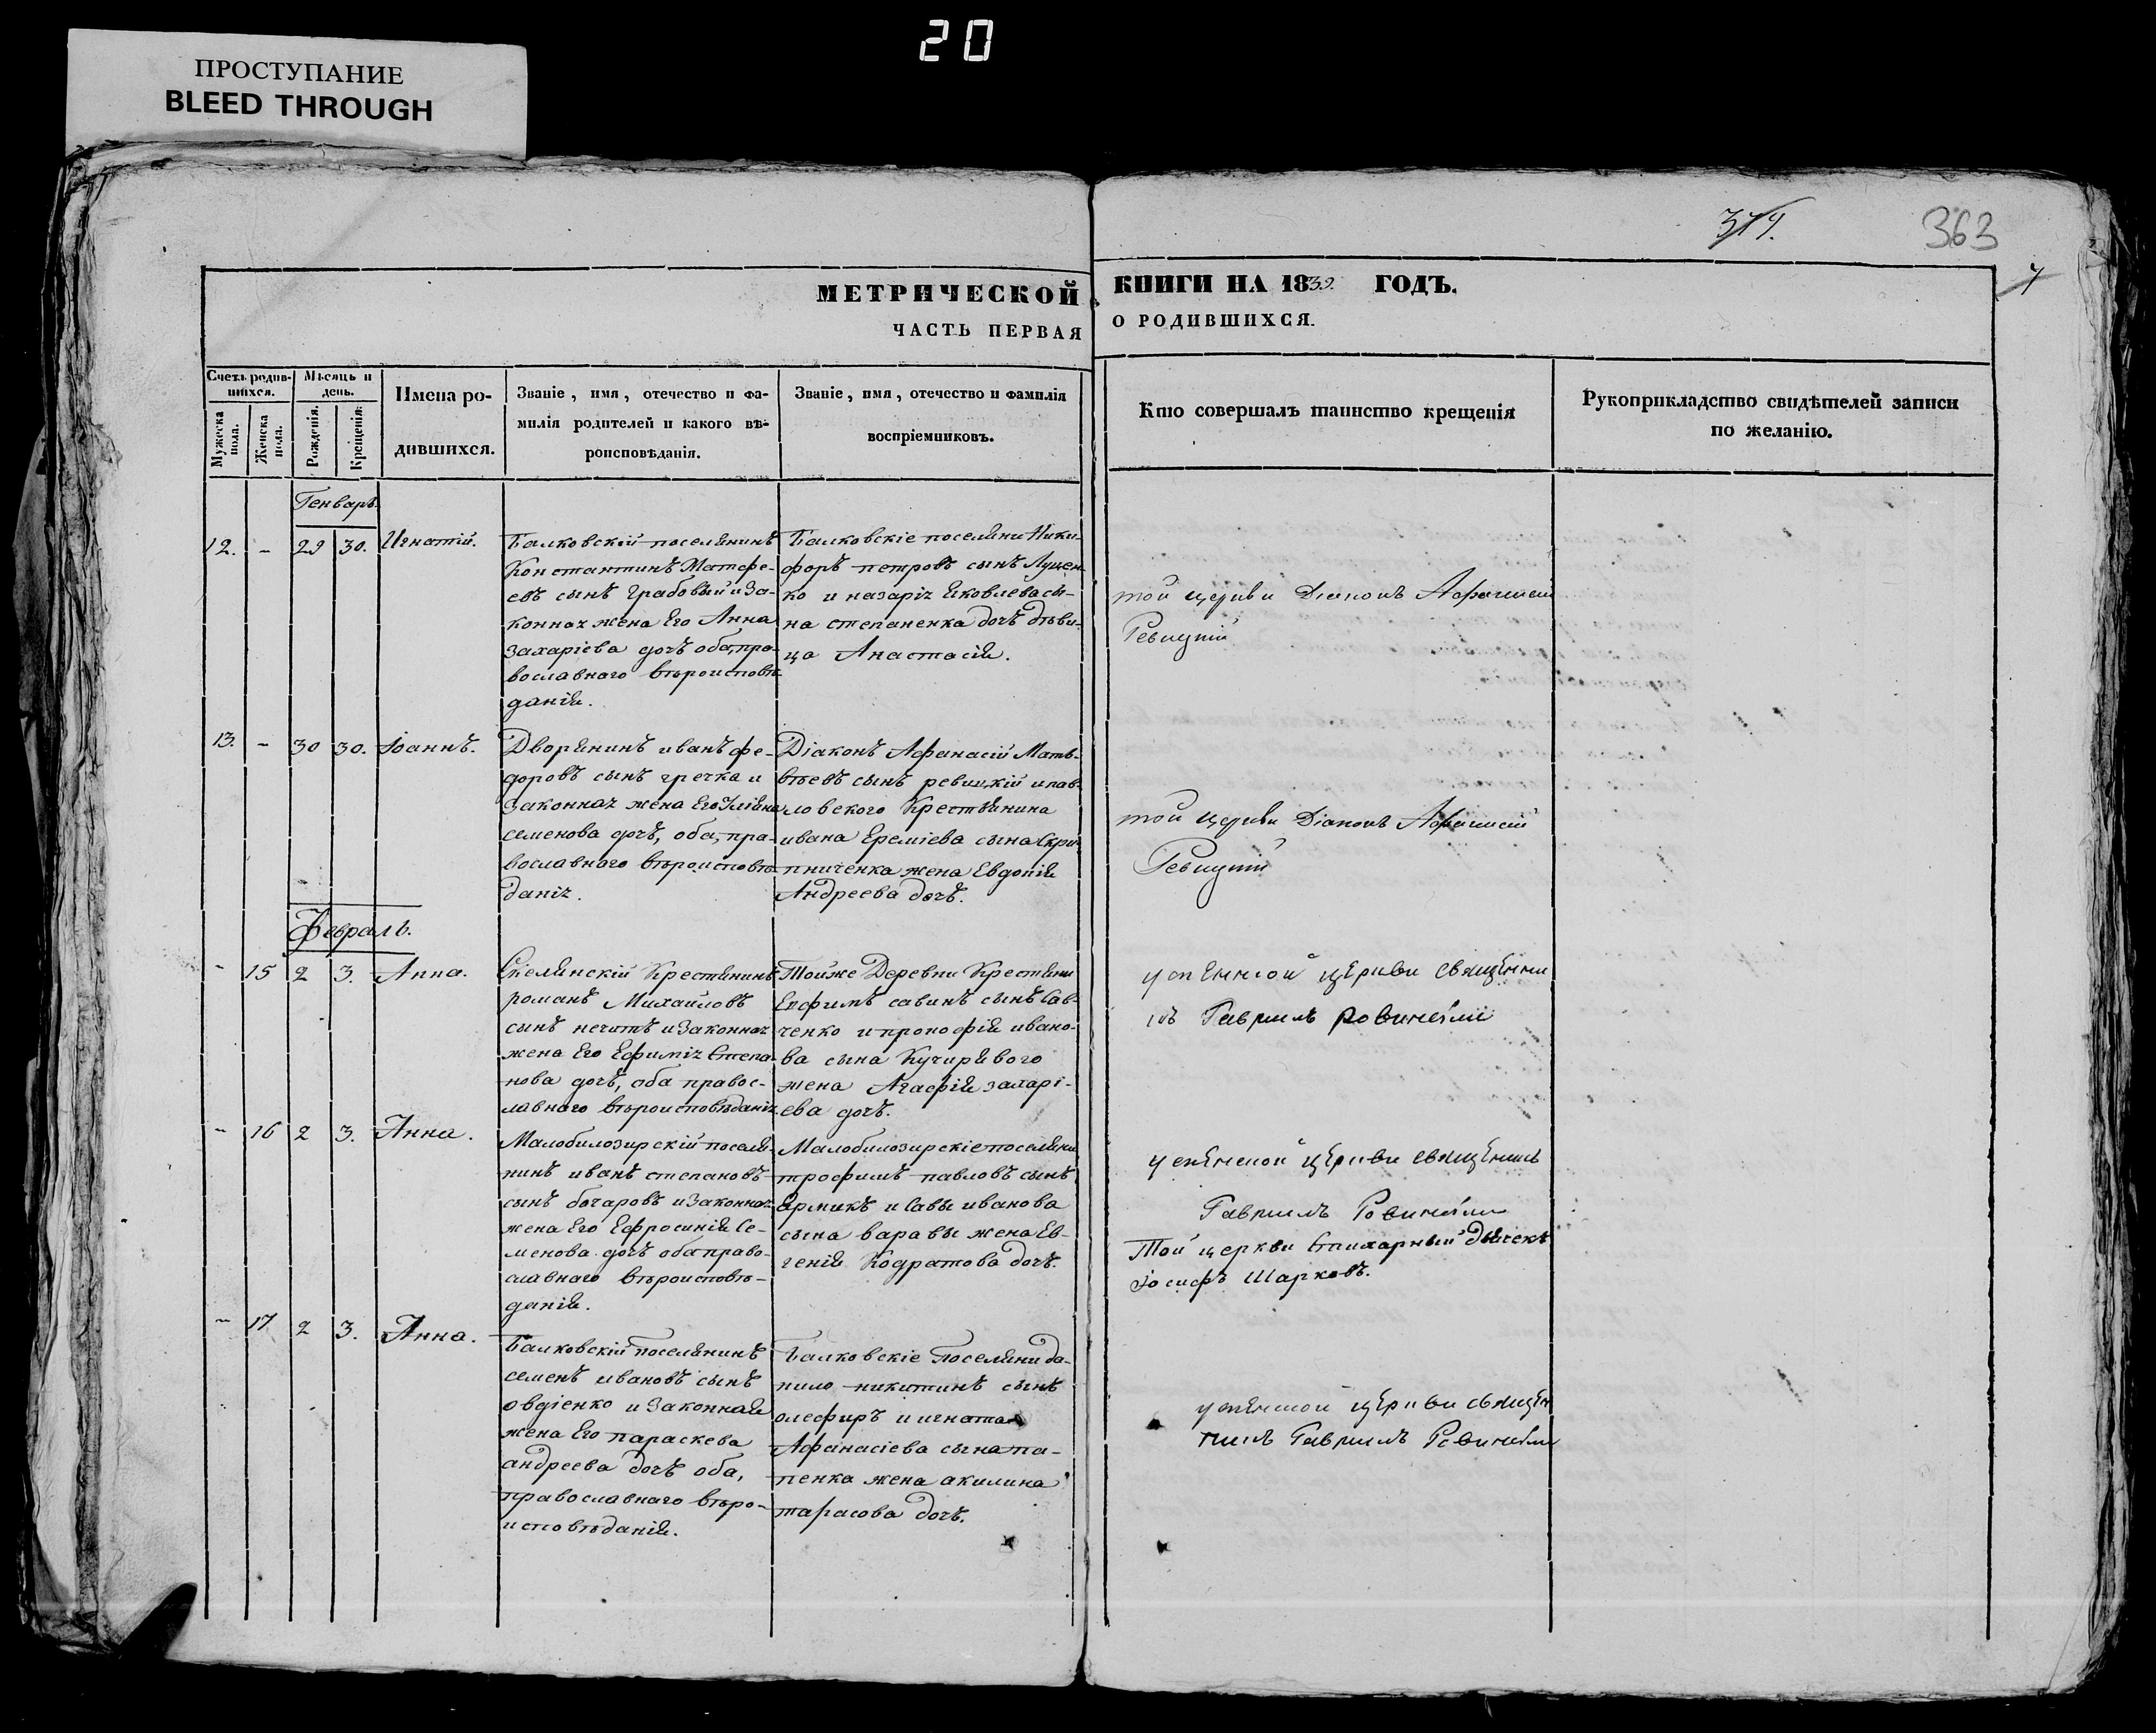 20
ПРОСТУПАНИЕ
BLEED THROUGH
363
МЕТРИЧЕСКОЙ КНИГИ НА 1839. ГОДЪ.
ЧАСТЬ ПЕРВАЯ О РОДИВШИХСЯ.
Счетъ родив-
шихся.
Мужеска
пола.
Женска
пола.
Мѣсяцъ и
день.
Рожденія.
Крещенія.
Имена ро-
дившихся.
Званіе, имя, отечество и фа-
милія родителей и какого вѣ-
роисповѣданія.
Званіе, имя, отечество и фамилія
воспріемниковъ.
Кто совершалъ таинство крещенія
Рукоприкладство свидѣтелей записи
по желанію.
Генварь.
12. - 29 30. Игнатій.
Балковскій поселянинъ
Константинъ Матфе-
евъ сынъ Грабовый и За-
конная жена Его Анна
Захаріева дочъ оба, пра-
вославнаго вѣроисповѣ-
данія.
Балковскіе поселяни Ники-
форъ петровъ сынъ Луцен-
ко и назарія Яковлева сы-
на степаненка дочъ дѣви-
ца Анастасія.
той церкви Діаконъ Афанасій
Ревицкій
13. - 30 30. Іоаннъ.
Дворянинъ иванъ фе-
доровъ сынъ гречка и
Законная жена Его
семенова дочъ, оба, пра-
вославнаго вѣроисповѣ-
данія.
Діаконъ Афанасій Мате-
вѣевъ сынъ ревицкій и пав-
ловского Крестянина
ивана Ереміева сына Скри-
пниченка жена Евдокія
Андреева дочъ.
той церкви Діаконъ Афанасій
Ревицкій
Февраль.
- 15 2 3. Анна.
Скелянскій Крестянинъ
романъ Михайловъ
сынъ нечитъ и Законная
жена Его Ефимія Степа-
нова дочъ, оба правос-
лавнаго вѣроисповѣданія.
Тойже Деревни Крестяни
Епфимъ савинъ сынъ Сав-
ченко и прокофія ивано-
ва сына Кучирявого
жена Агафія захарі-
ева дочъ.
успенской церкви священни
къ Гавріилъ
- 16 2 3. Анна.
Малобилозирскій поселя-
нинъ иванъ степановъ
сынъ бочаровъ и Законная
жена Его Ефросинія Се-
менова дочъ оба право-
славнаго вѣроисповѣ-
данія.
Малобилозирскіе поселяни
трофимъ павловъ сынъ
Ярмикъ и Савы иванова
сына варавы жена Ев-
генія Кодратова дочъ.
успенской церкви священикъ
Гавріилъ
Той церкви Стихарный дьячекъ
Іосифъ Шарковъ.
- 17 2 3. Анна.
Балковскій поселянинъ
семенъ ивановъ сынъ
овдіенко и Законная
жена Его параскева
андреева дочъ оба,
православнаго вѣро-
исповѣданія.
Балковскіе Поселяни да-
нило никитинъ сынъ
олефиръ и игната
Афанасіева сына па-
пенка жена акилина
тарасова дочъ.
успенской церкви священ
никъ Гавріилъ